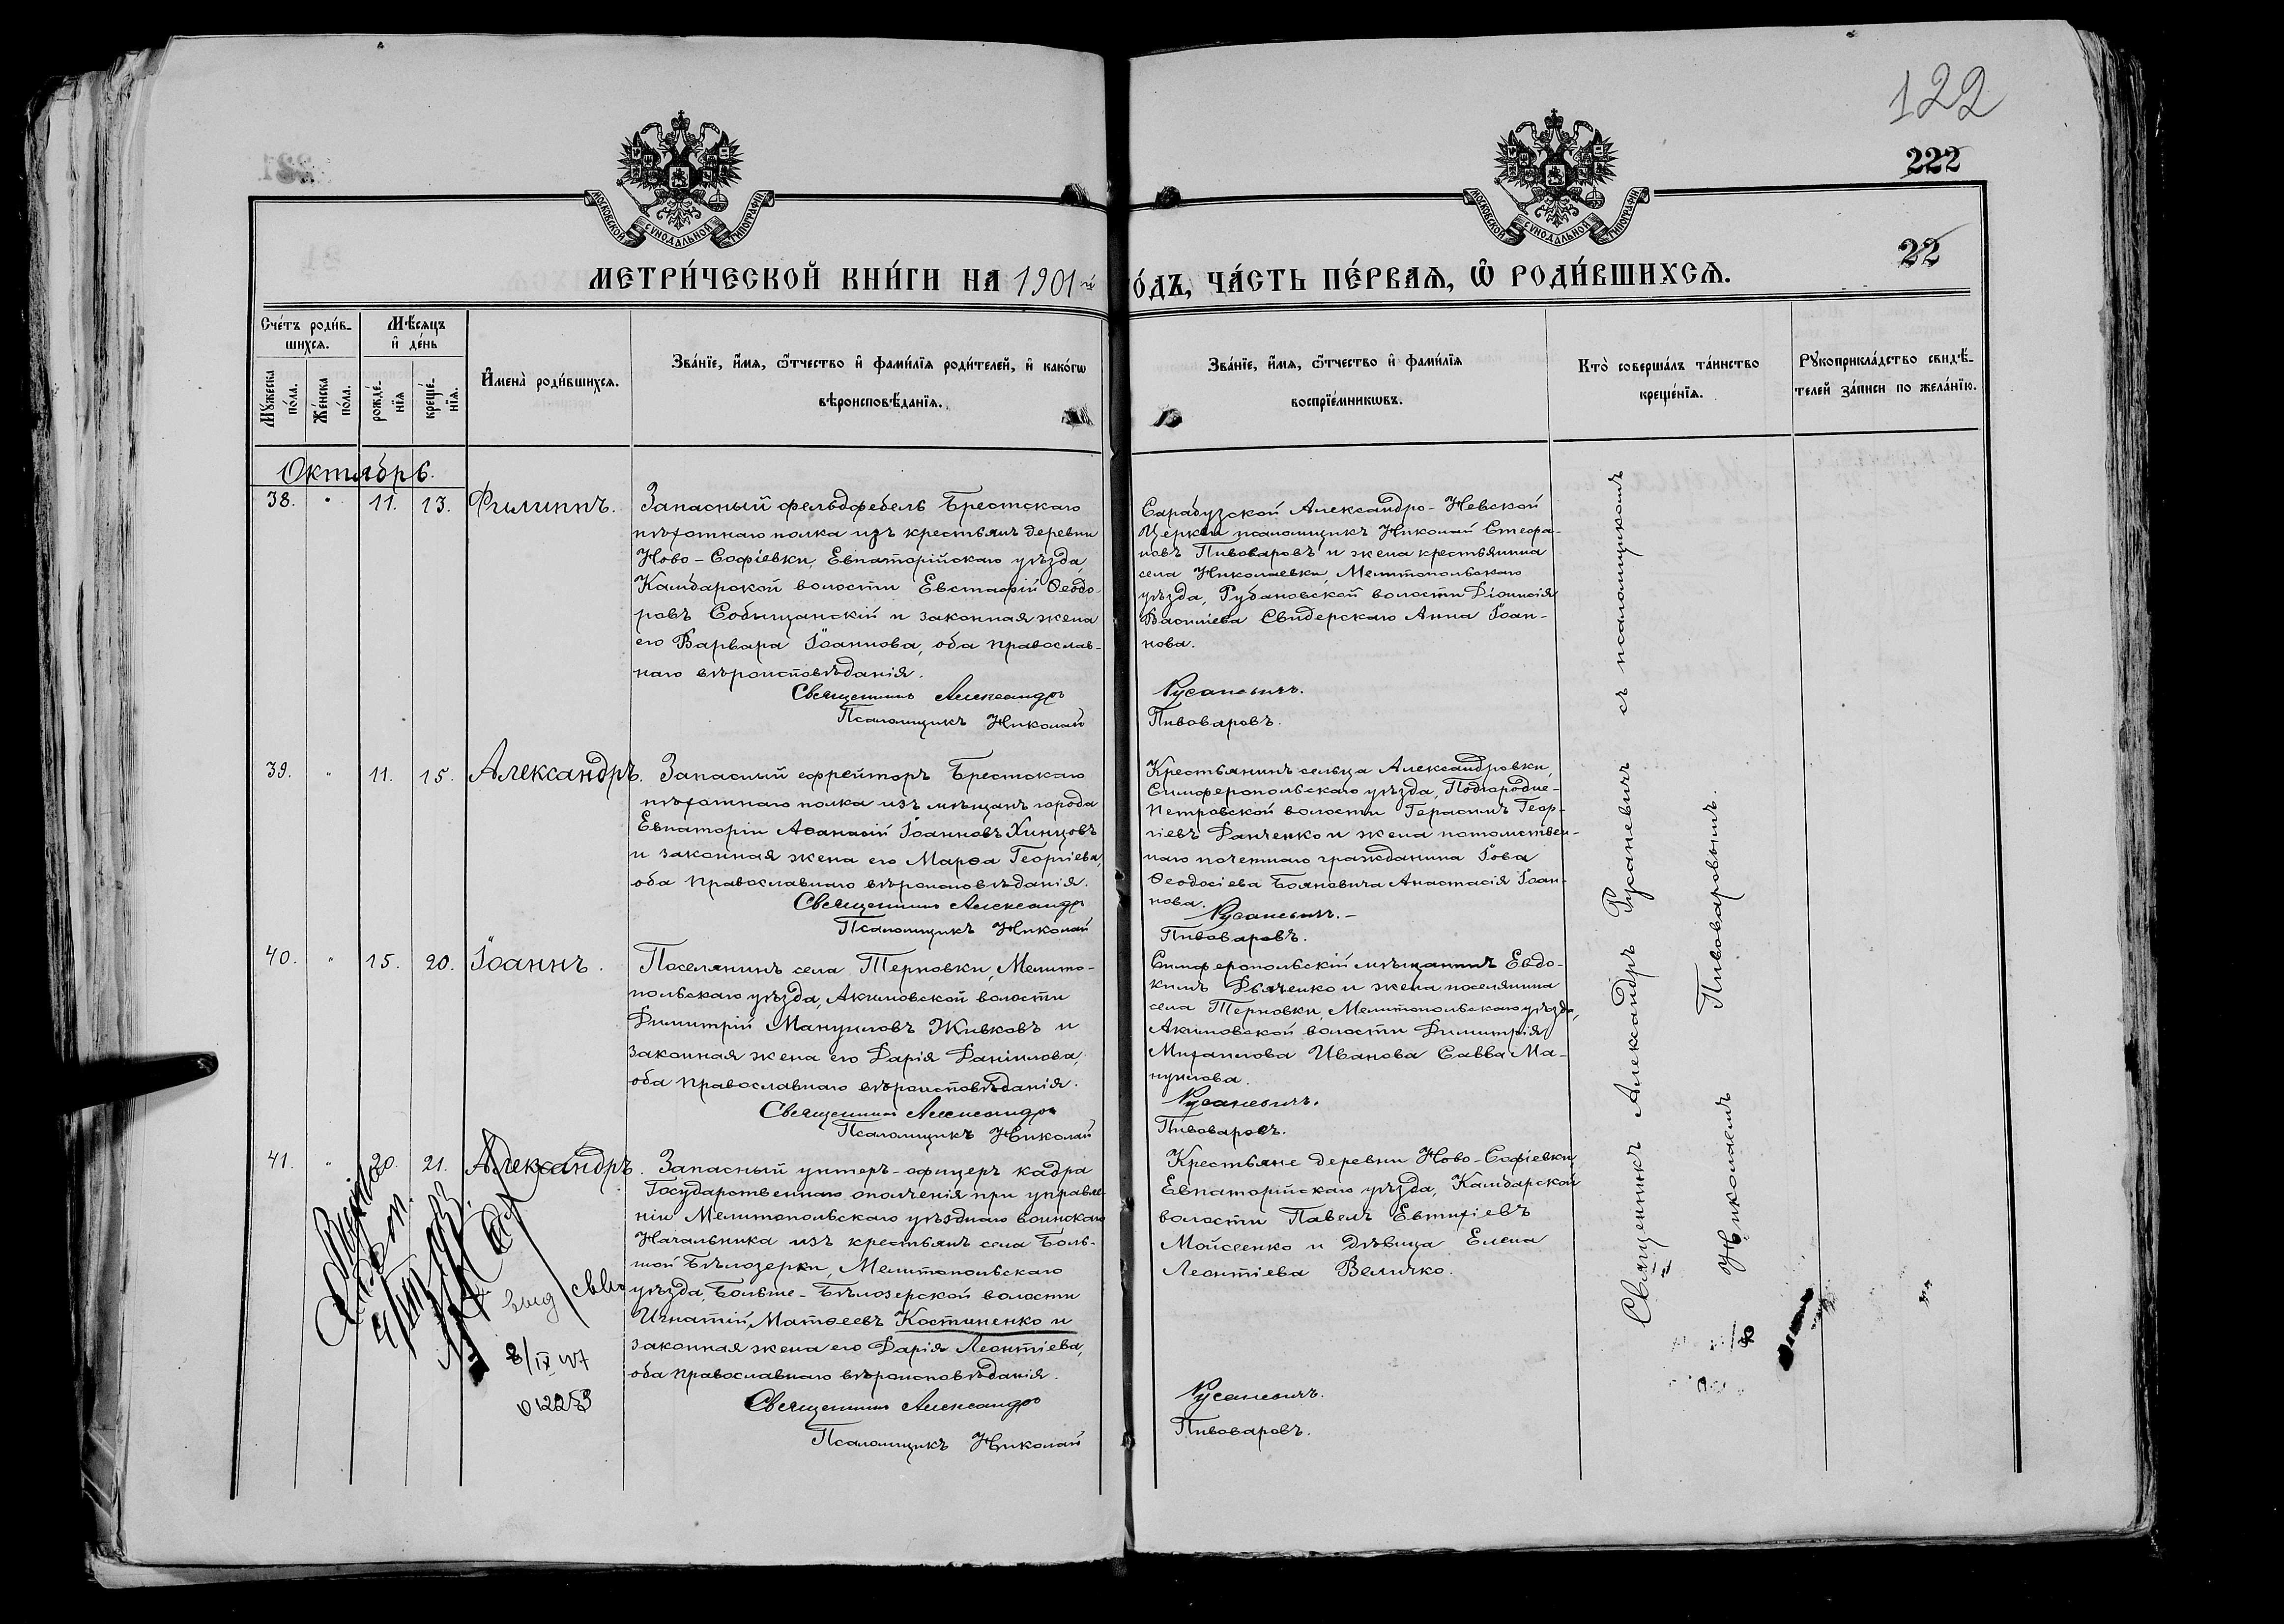 122
222
22
МОСКОВСКОЙ СѴНОДАЛЬНОЙ ТИПОГРАФІИ
МОСКОВСКОЙ СѴНОДАЛЬНОЙ ТИПОГРАФІИ
МЕТРИ́ЧЕСКОЙ КНИ́ГИ НА 1901й ГО́ДЪ, ЧА́СТЬ ПЕ́РВАѦ, Ѽ РОДИ́ВШИХСѦ.
Сче́тъ роди́в-
шихсѧ.
Мꙋ́жеска
по́ла.
Же́нска
по́ла.
Мѣ́сѧцъ
и҆ де́нь
рожде́-
нїѧ
креще́-
нїѧ.
И҆мена̀ роди́вшихсѧ.
Зва́нїе, и҆́мѧ, ѻ҆́тчество и҆ фами́лїѧ роди́телей, и҆ како́гѡ
вѣроисповѣ́данїѧ.
Зва́нїе, и҆́мѧ, ѻ҆́тчество и҆ фами́лїѧ
воспрїе́мникѡвъ.
Кто̀ соверша́лъ та́инство
креще́нїѧ.
Рꙋкоприкла́дство свидѣ́-
телей за́писи по жела́нїю.
Октябрь.
38. " 11. 13. Филиппъ.
Запасный фельдфебель Брестскаго
пѣхотнаго полка изъ крестьянъ деревни
Ново-Софіевки, Евпаторійскаго уѣзда,
Камбарской волости Евстафій Ѳеодо-
ровъ Собищанскій и законная жена
его Варвара Іоаннова, оба православ-
наго вѣроисповѣданія.
Священникъ Александръ
Псаломщикъ Николай
Сарабузской Александро-Невской
Церкви псаломщикъ Николай Стефа-
новъ Пивоваровъ и жена крестьянина
села Николаевки, Мелитопольскаго
уѣзда, Рубановской волости Діонисія
Василіева Свидерскаго Анна Іоан-
нова.
Русаневичъ.
Пивоваровъ.
39. " 11. 15. Александръ.
Запасный ефрейторъ Брестскаго
пѣхотнаго полка изъ мѣщанъ города
Евпаторіи Аѳанасій Іоанновъ Хинцовъ
и законная жена его Марѳа Георгіева,
оба православнаго вѣроисповѣданія.
Священникъ Александръ
Псаломщикъ Николай
Крестьянинъ сельца Александровки,
Симферопольскаго уѣзда, Подгородне-
Петровской волости Герасимъ Геор-
гіевъ Данченко и жена потомствен-
наго почетнаго гражданина Іова
Ѳеодосіева Бояновича Анастасія Іоан-
нова.
Русаневичъ.-
Пивоваровъ.
40. " 15. 20. Іоаннъ.
Поселянинъ села Терновки, Мелито-
польскаго уѣзда, Акимовской волости
Димитрій Мануиловъ Живковъ и
законная жена его Дарія Даніилова,
оба православнаго вѣроисповѣданія.
Священникъ Александръ
Псаломщикъ Николай
Симферопольскій мѣщанинъ Евдо-
кимъ Дьяченко и жена поселянина
села Терновки, Мелитопольскаго уѣзда,
Акимовской волости Димитрія
Михаилова Иванова Савва Ма-
нуилова.
Русаневичъ.
Пивоваровъ.
41. " 20. 21. Александръ.
Запасный унтеръ-офицеръ кадра
Государственнаго ополченія при управле-
ніи Мелитопольскаго уѣзднаго воинскаго
Начальника изъ крестьянъ села Боль-
шой Бѣлозерки, Мелитопольскаго
уѣзда, Больше-Бѣлозерской волости
Игнатій Матѳеевъ Костиненко и
законная жена его Дарія Леонтіева,
оба православнаго вѣроисповѣданія.
Священникъ Александръ
Псаломщикъ Николай
Крестьяне деревни Ново-Софіевки,
Евпаторійскаго уѣзда, Камбарской
волости Павелъ Евтихіевъ
Мойсеенко и дѣвица Елена
Леонтіева Величко.
Русаневичъ.
Пивоваровъ.
Священникъ Александръ Русаневичъ съ псаломщикомъ
Николаемъ Пивоваровымъ.
012253